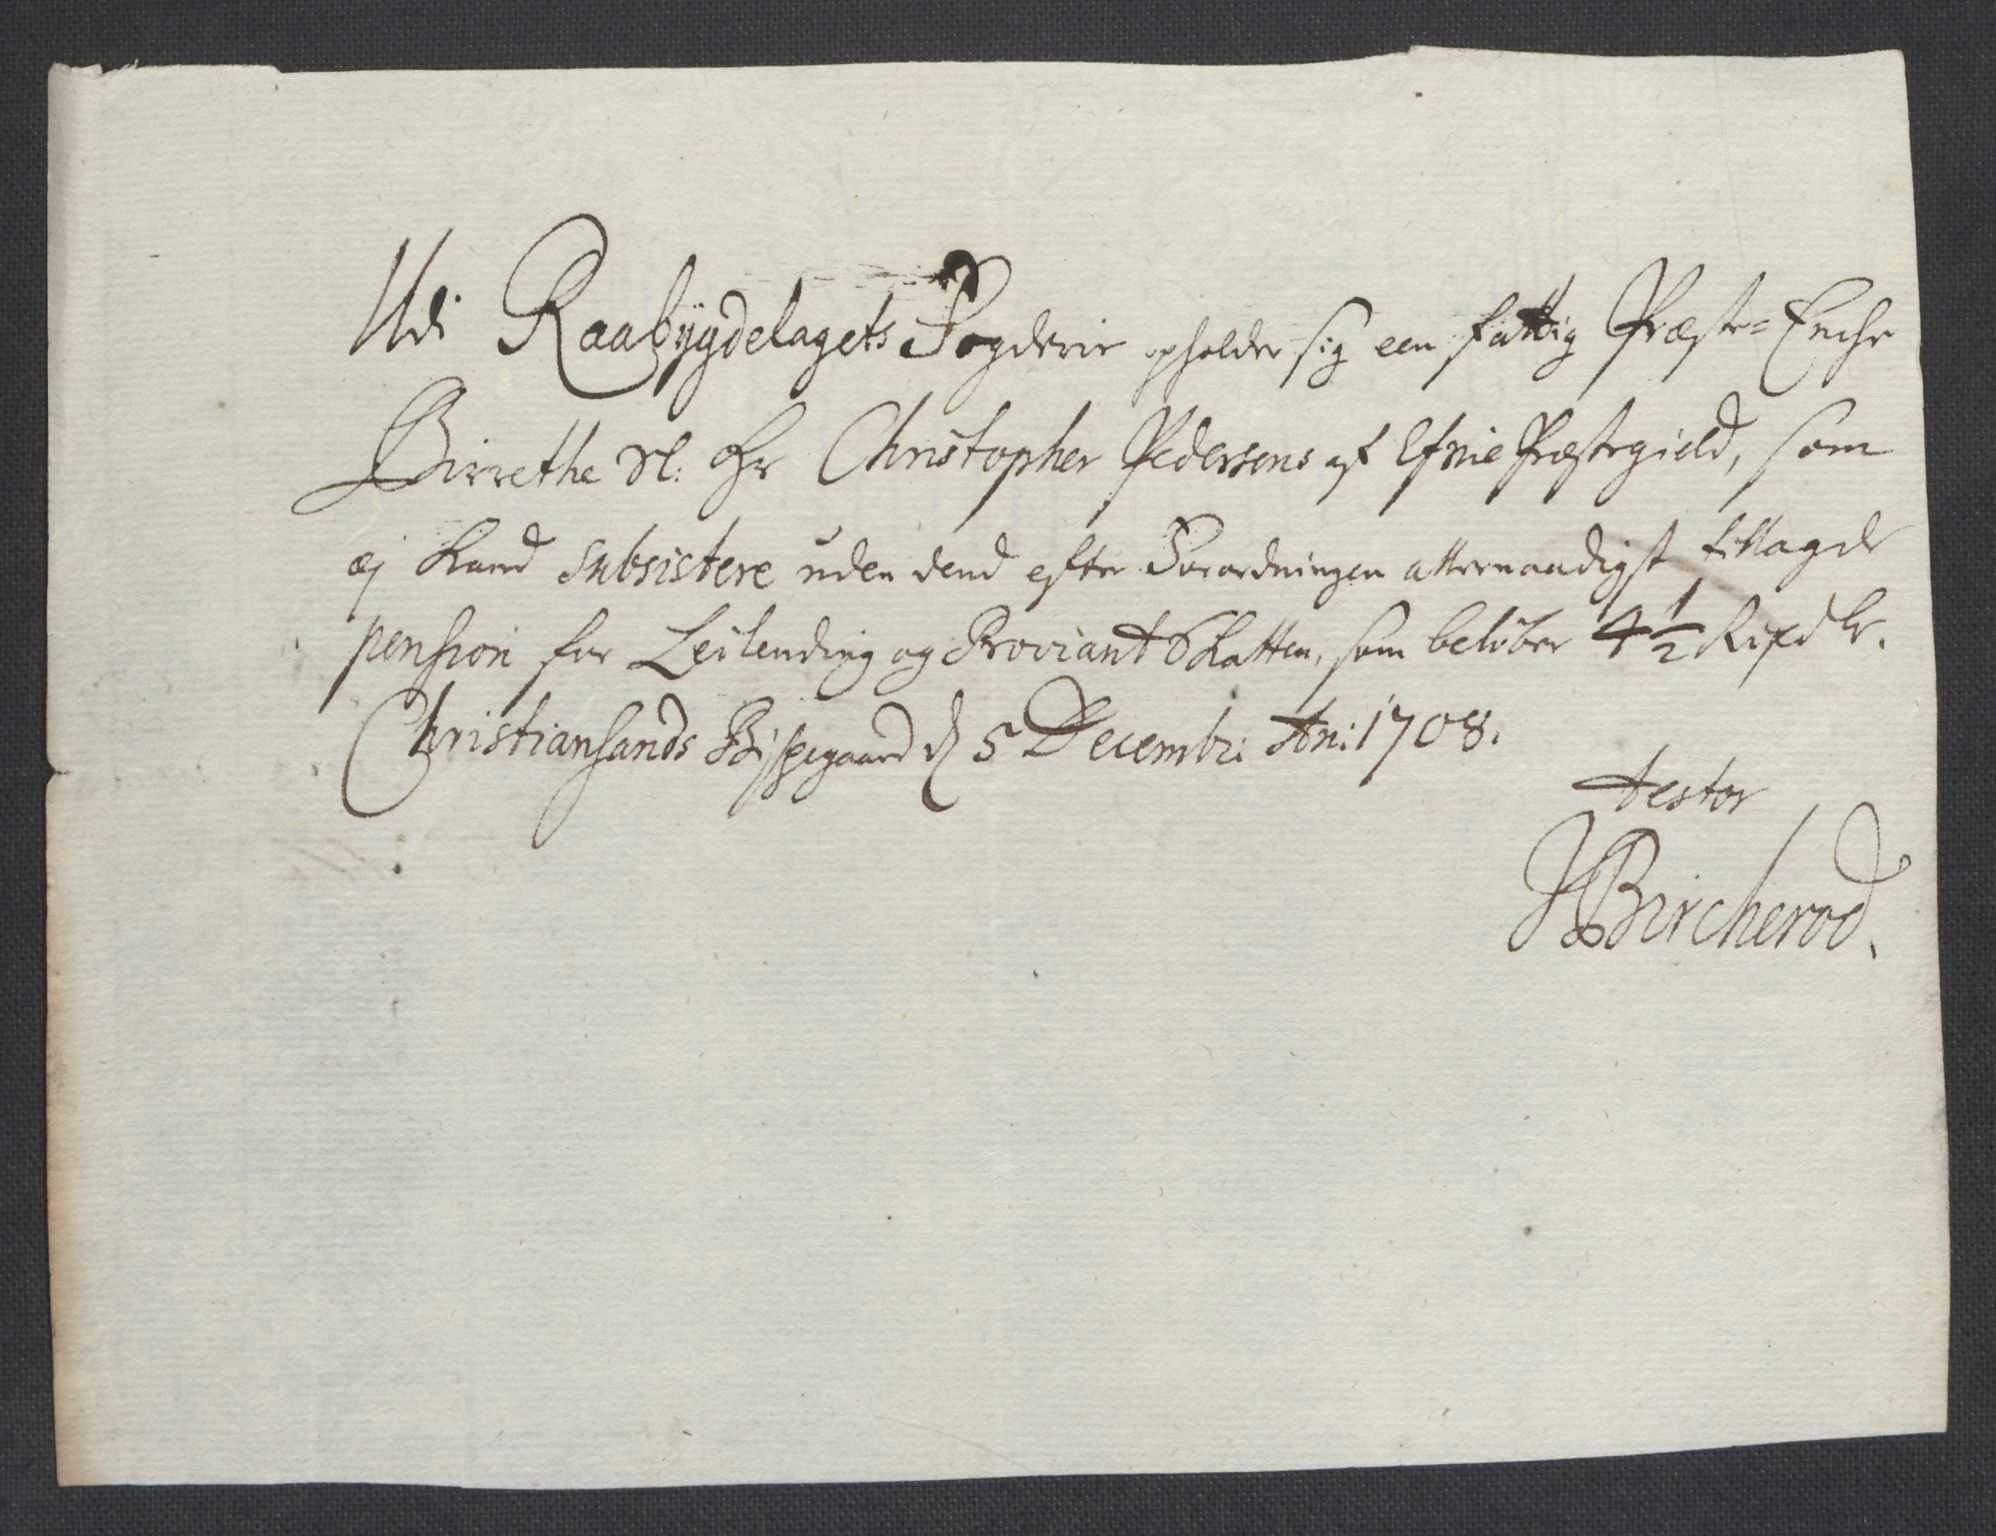 Udi Raabygdelagets Fogderie opholder sig een fattig Præste-Encke
Birrethe Sl: Hr Christopher Pedersens af Efnie Præstegield, som
ej kand subsistere uden dend efter Forordningen allernaadigst tillagde
pension for Leilending og Proviant Skatten, som beløber 4 1/2 Rixdlr.
Christiansands Bispegaard d 5 Decembr: An: 1708.
testor
JBircherod.